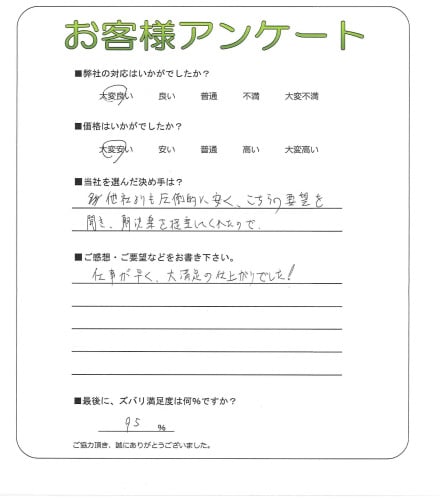 お客様アンケート
■弊社の対応はいかがでしたか？
大変良い 良い 普通 不満 大変不満
■価格はいかがでしたか？
大変安い 安い 普通 高い 大変高い
■当社を選んだ決め手は？
他社よりも圧倒的に安く、こちらの要望を
聞き、解決案を提案してくれたので、
■ご感想・ご要望などをお書き下さい。
仕事が早く、大満足の仕上がりでした！
■最後に、ズバリ満足度は何%ですか？
95 %
ご協力頂き、誠にありがとうございました。